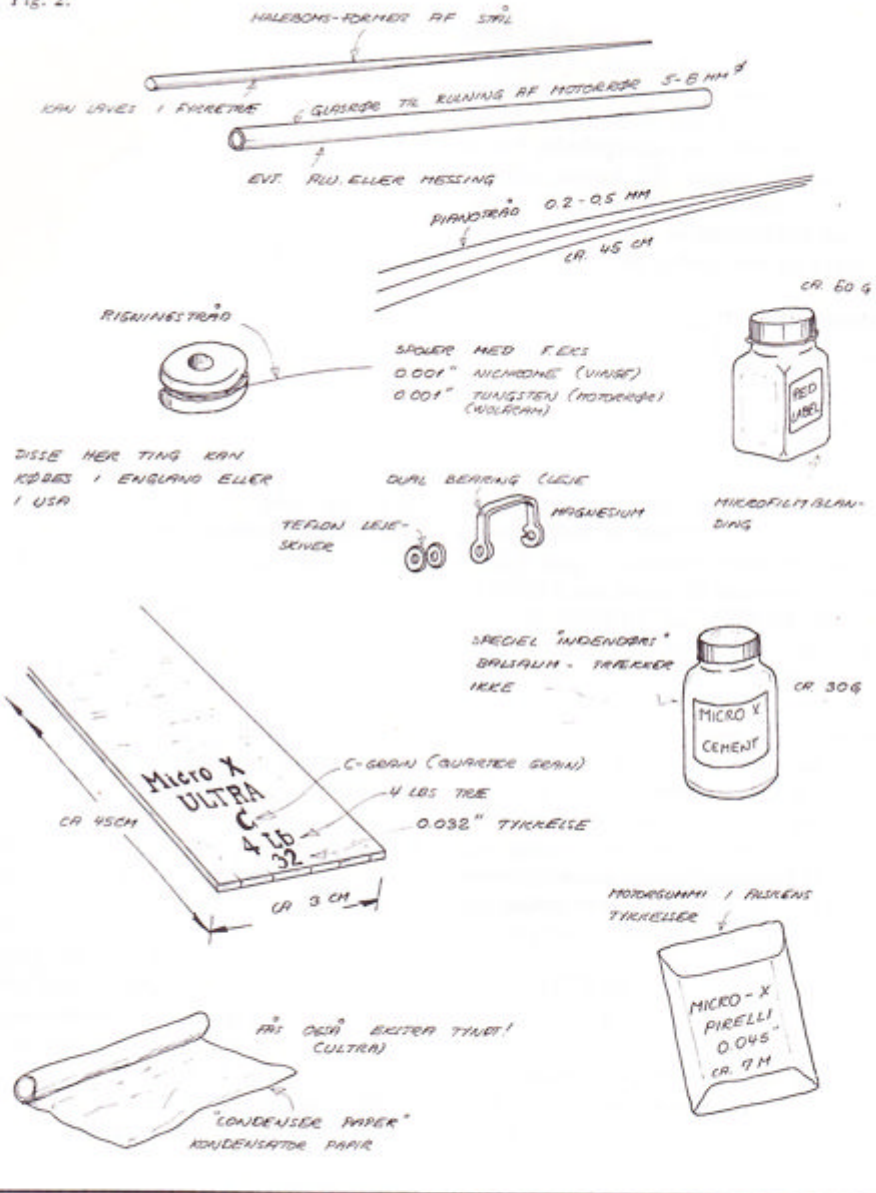 Fig. 2.
HALEBOMS-FORMER AF STÅL
KAN LAVES I FYRRETRÆ
GLASRØR TIL RULNING AF MOTORRØR 5-8 MM Ø
EVT. ALU. ELLER MESSING
PIANOTRÅD 0.2-0.5 MM
CA. 45 CM
CA. 60 G
RIGNINGSTRÅD
SPOLER MED F.EKS
0.001" NICHROME (VINGE)
0.001" TUNGSTEN (MOTORRØR)
(WOLFRAM)
RED
LABEL
MIKROFILMBLAN-
DING
DISSE HER TING KAN
KØBES I ENGLAND ELLER
I USA
DUAL BEARING (LEJE
MAGNESIUM
TEFLON LEJE-
SKIVER
SPECIEL "INDENDØRS"
BALSALIM - TRÆKKER
IKKE
CA. 30G
MICRO X
CEMENT
Micro X
ULTRA
C
4 Lb
32
C-GRAIN (QUARTER GRAIN)
4 LBS TRÆ
0.032" TYKKELSE
CA 45CM
CA 3 CM
MOTORGUMMI I ALSKENS
TYKKELSER
MICRO-X
PIRELLI
0.045"
CA. 7 M
FÅS OGSÅ EKSTRA TYNDT!
(ULTRA)
"CONDENSER PAPER"
KONDENSATOR PAPIR